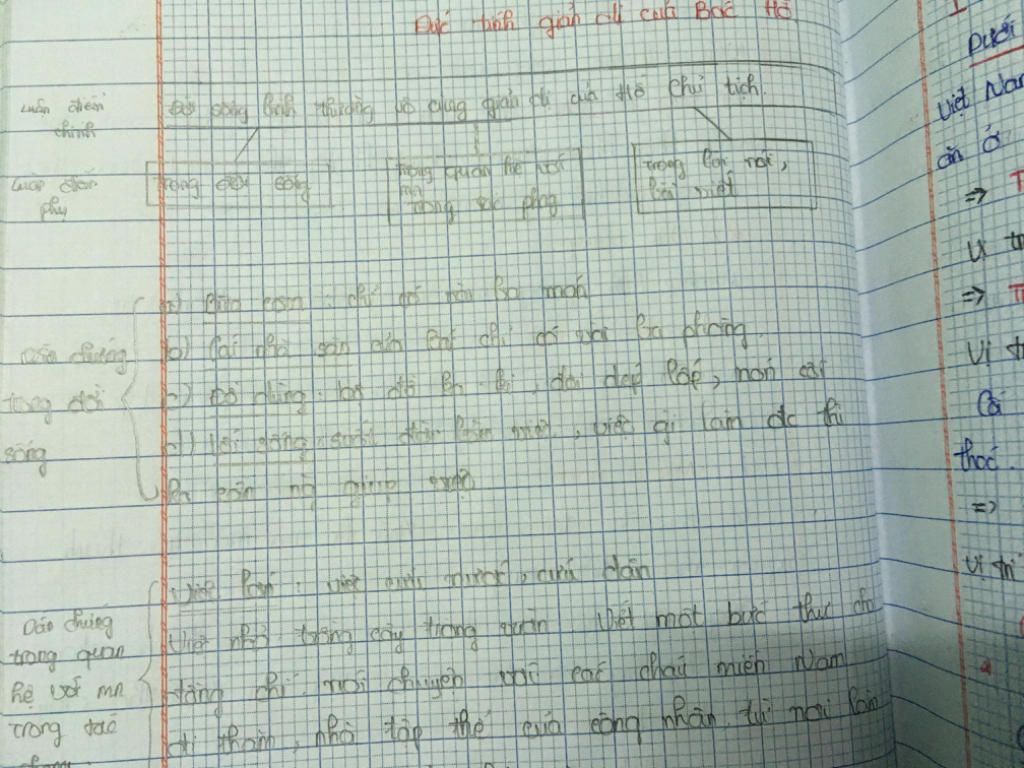 Đức tính giản dị của Bác Hồ
luận điểm chính
Đời sống bình thường vô cùng giản dị của Hồ Chủ tịch.
luận điểm phụ
trong đời sống
trong quan hệ với
mn
trong tác phong
trong lời nói,
bài viết
a) Bữa cơm: chỉ có vài ba món
b) Cái nhà sàn của Bác chỉ có vài ba phòng
Dẫn chứng
trong đời
sống
c) Đồ dùng: bộ đồ ba ba, đôi dép lốp, nón cát
d) Lối sống: suốt đời làm việc, việc gì làm đc thì
ko cần ng giúp
Việc lớn: việc cứu nước, cứu dân
Việc nhỏ: trồng cây trong vườn. Viết một bức thư cho
đồng chí. nói chuyện với các cháu miền Nam
đi thăm, nhà tập thể của công nhân, từ nơi làm
Dẫn chứng
trong quan
hệ với mn
trong tác
phong
Dưới
Việt Nam
ăn ở
=> T
Vị tr
=> T
Vị tr
Cối
thóc.
=>
Vị trí